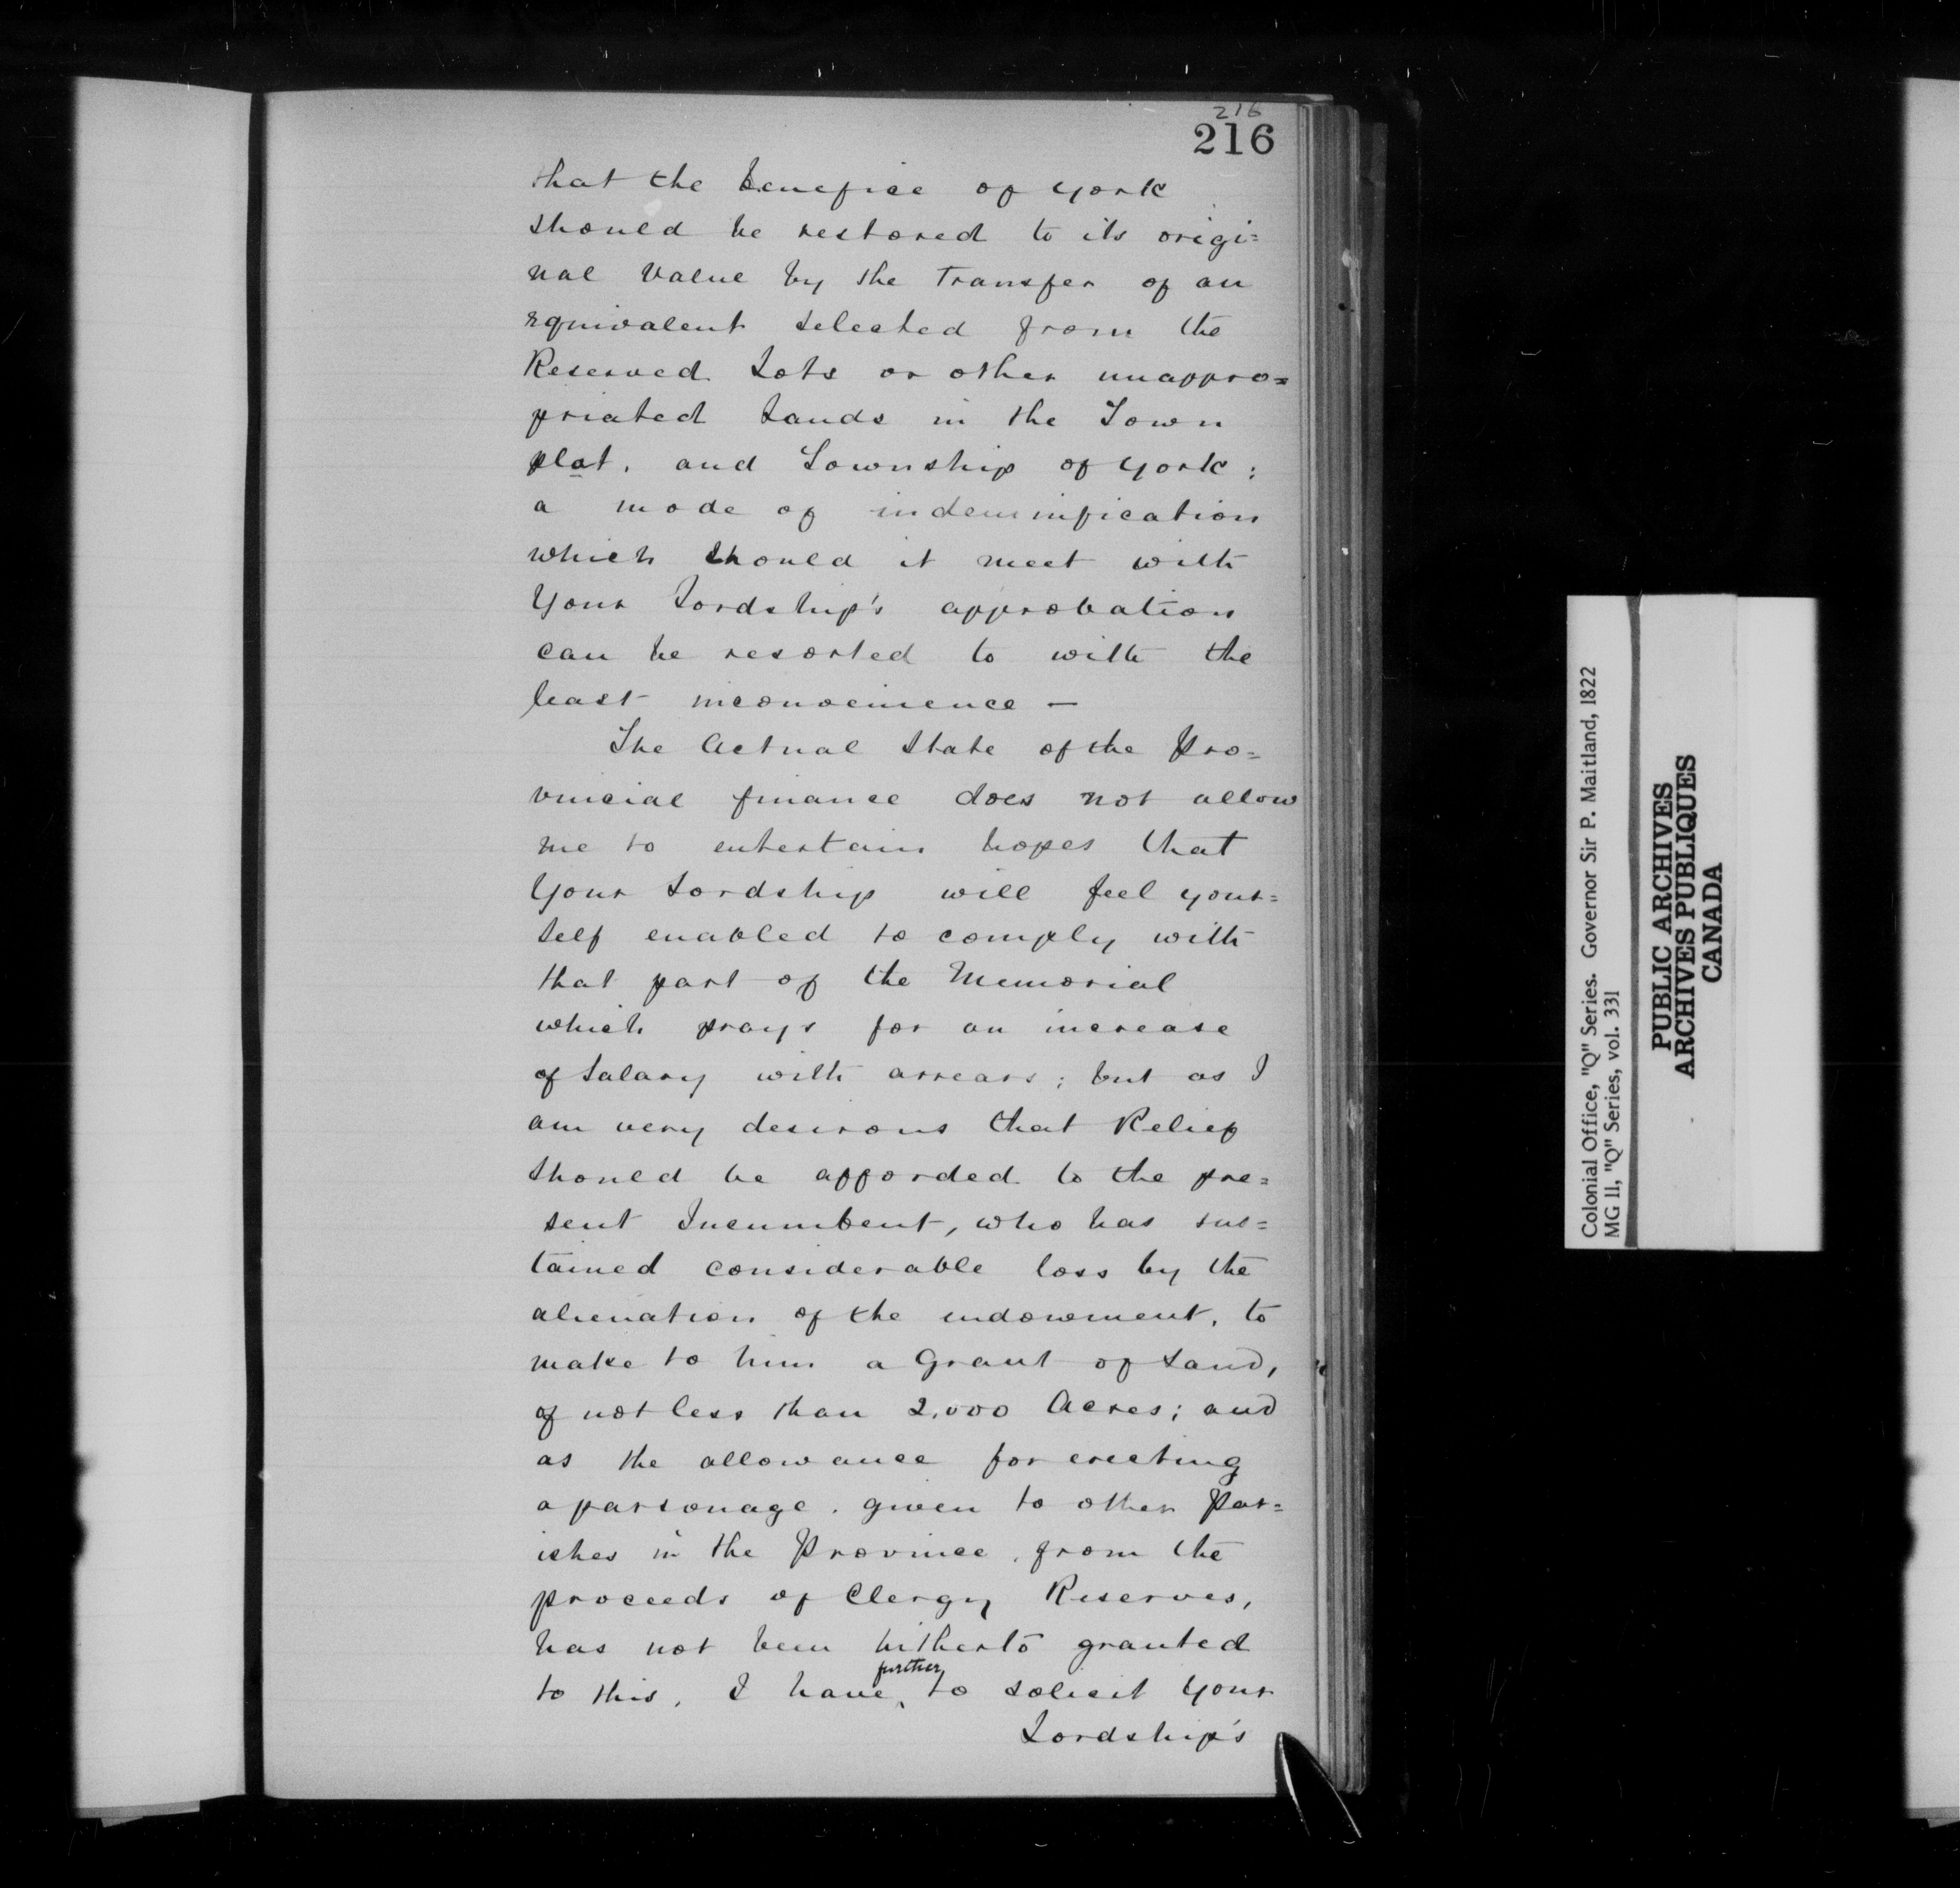 216
216
that the benefice of York
should be restored to its origi=
nal Value by the Transfer of an
equivalent selected from the
Reserved Lots or other unappro=
priated Lands in the Town
plot, and Township of York:
a mode of indemnification
which should it meet with
Your Lordship's approbation
can be resorted to with the
least inconvenience —
The Actual State of the Pro=
vincial finance does not allow
me to entertain hopes that
Your Lordship will feel your=
self enabled to comply with
that part of the Memorial
which prays for an increase
of Salary with arrears; but as I
am very desirous that Relief
should be afforded to the pre=
sent Incumbent, who has sus=
tained considerable loss by the
alienation of the endowment, to
make to him a Grant of Land,
of not less than 2,000 Acres; and
as the allowance for erecting
a parsonage, given to other Par=
ishes in the Province, from the
proceeds of Clergy Reserves,
has not been hitherto granted
to this, I have further to solicit Your
Lordship's
Colonial Office, "Q" Series. Governor Sir P. Maitland, 1822
MG 11, "Q" Series, vol. 331
PUBLIC ARCHIVES
ARCHIVES PUBLIQUES
CANADA